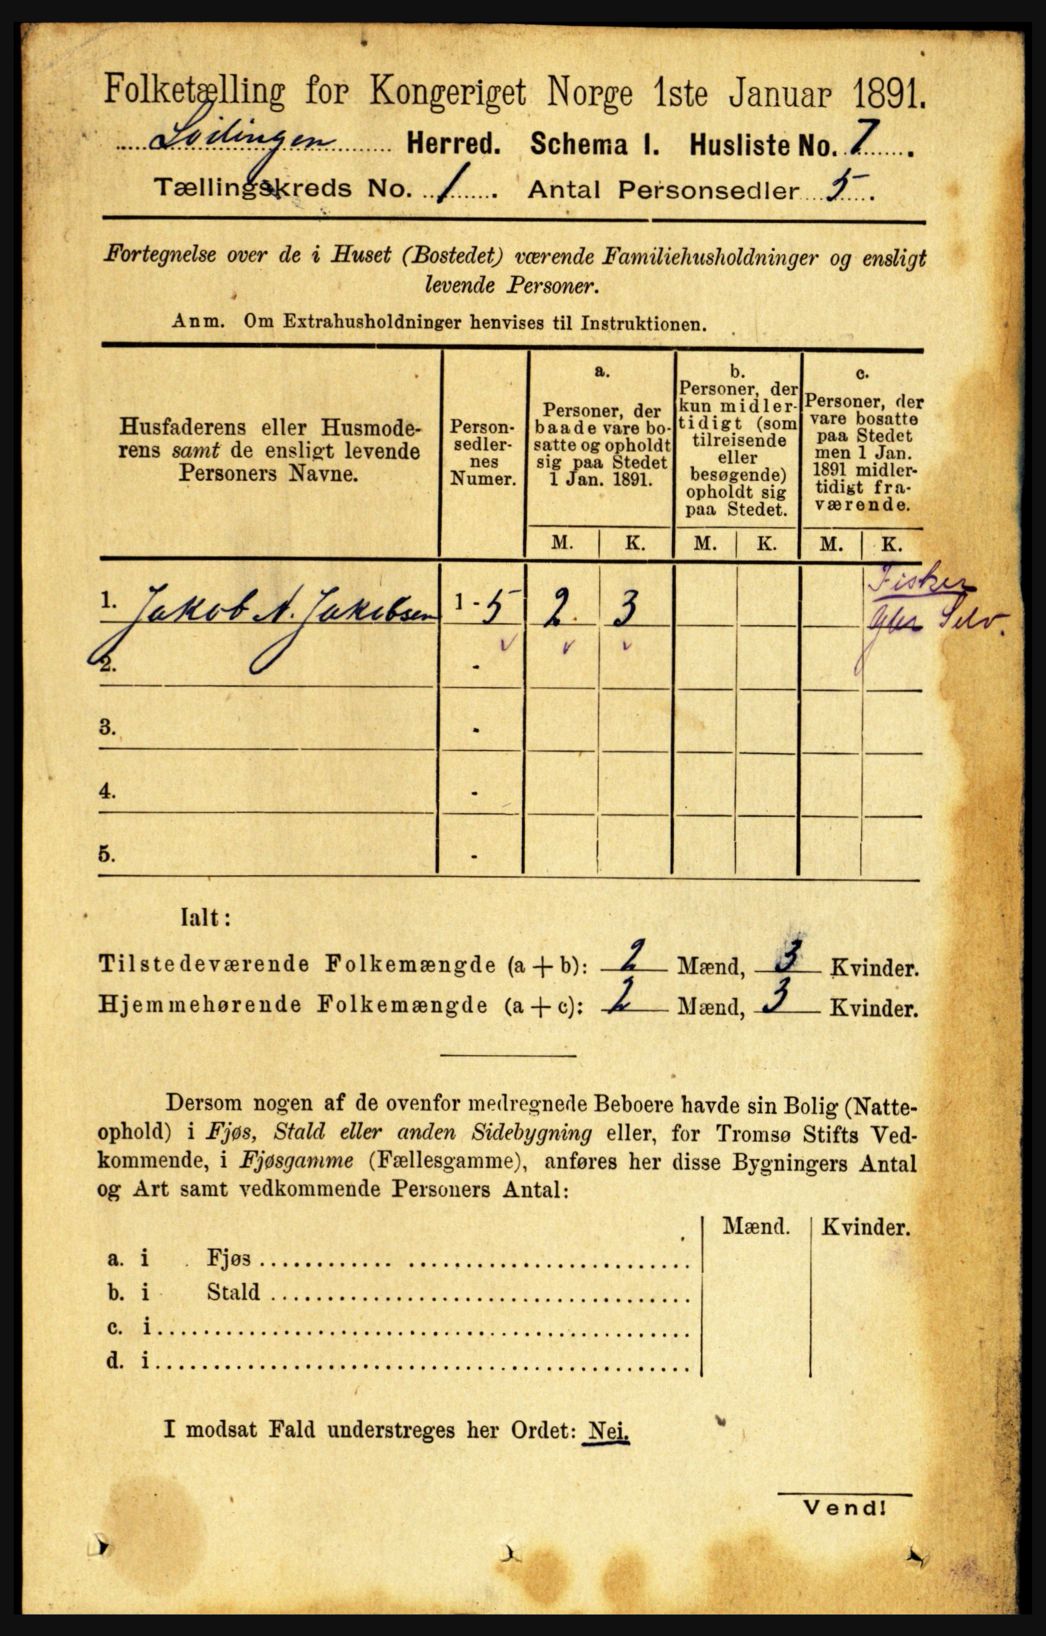 Folketælling for Kongeriget Norge 1ste Januar 1891.
Lødingen Herred. Schema I. Husliste No. 7.
Tællingskreds No. 1. Antal Personsedler 5.
Fortegnelse over de i Huset (Bostedet) værende Familiehusholdninger og ensligt
levende Personer.
Anm. Om Extrahusholdninger henvises til Instruktionen.
Husfaderens eller Husmode-
rens samt de ensligt levende
Personers Navne.
Person-
sedler-
nes
Numer.
a.
Personer, der
baade vare bo-
satte og opholdt
sig paa Stedet
1 Jan. 1891.
b.
Personer, der
kun midler-
tidigt (som
tilreisende
eller
besøgende)
opholdt sig
paa Stedet.
c.
Personer, der
vare bosatte
paa Stedet
men 1 Jan.
1891 midler-
tidigt fra-
værende.
M. K. M. K. M. K.
Fisker
1. Jakob A. Jakobsen 1 - 5 2. 3
Selv.
2. -
3. -
4. -
5. -
Ialt:
Tilstedeværende Folkemængde (a + b): 2 Mænd, 3 Kvinder.
Hjemmehørende Folkemængde (a + c): 2 Mænd, 3 Kvinder.
Dersom nogen af de ovenfor medregnede Beboere havde sin Bolig (Natte-
ophold) i Fjøs, Stald eller anden Sidebygning eller, for Tromsø Stifts Ved-
kommende, i Fjøsgamme (Fællesgamme), anføres her disse Bygningers Antal
og Art samt vedkommende Personers Antal:
Mænd. Kvinder.
a. i Fjøs
b. i Stald
c. i
d. i
I modsat Fald understreges her Ordet: Nei.
Vend!